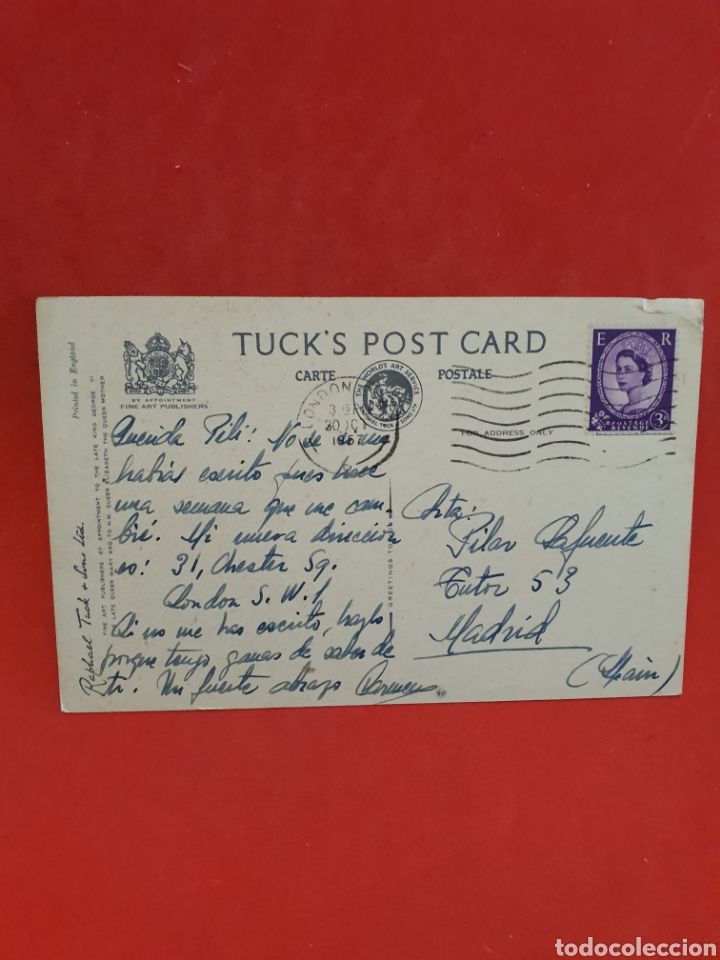 TUCK'S POST CARD
CARTE POSTALE
BY APPOINTMENT
FINE ART PUBLISHERS
Printed in England
FINE ART PUBLISHERS BY APPOINTMENT TO THE LATE KING GEORGE VI
THE LATE QUEEN MARY AND TO H.M. QUEEN ELIZABETH THE QUEEN MOTHER
Raphael Tuck & Sons Ltd.
THE WORLD'S ART SERVICE
RAPHAEL TUCK & SONS LTD
LONDON
1957
E R
POSTAGE
REVENUE
3D
FOR ADDRESS ONLY
GREETINGS TO
Querida Pili: No se si me
habías escrito pues hace
una semana que me cam-
bié. Mi nueva direccion
es: 31, Chester Sq.
London S. W. 1
Si no me has escrito, hazlo
porque tengo ganas de saber de
ti. Un fuerte abrazo
Srta:
Pilar Lafuente
Tutor 53
Madrid
(Spain)
todocoleccion